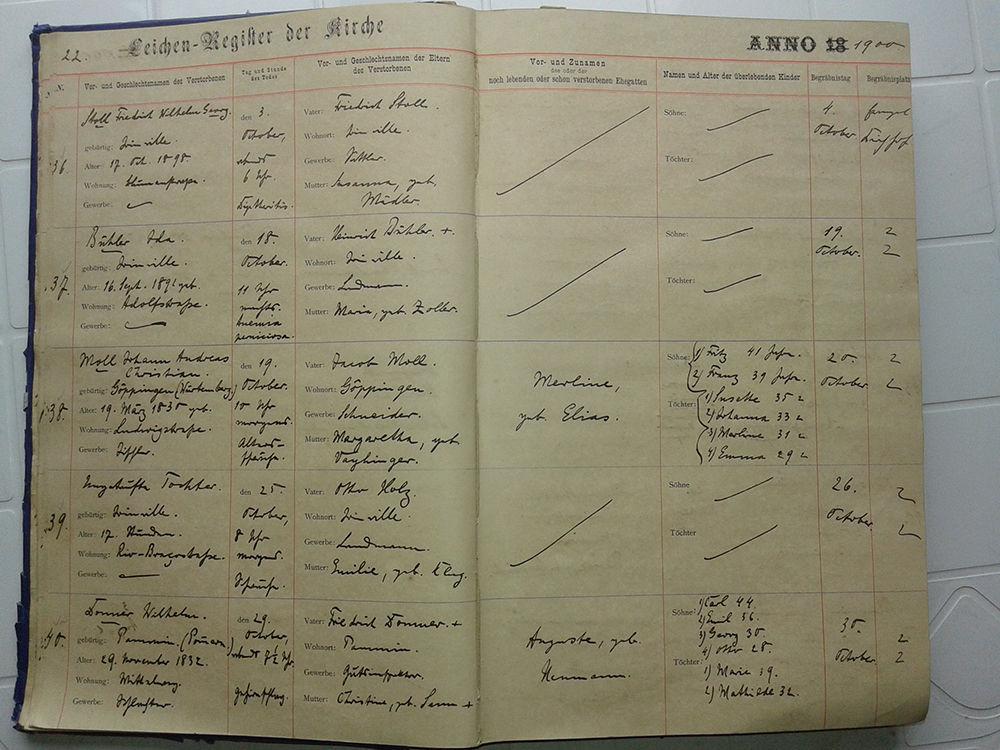 22. Leichen-Register der Kirche
ANNO 18 1900
N.
Vor- und Geschlechtsnamen des Verstorbenen
Tag und Stunde des Todes
Vor- und Geschlechtsnamen der Eltern
des Verstorbenen
Vor- und Zunamen
des oder der
noch lebenden oder schon verstorbenen Ehegatten
Namen und Alter der überlebenden Kinder
Begräbnistag
Begräbnisplatz
36
Stoll Friedrich Wilhelm Georg.
gebürtig: Joinville.
Alter: 17. Oct. 1898
Wohnung:
Gewerbe:
den 3.
October,
abends
6 Uhr.
Dyphtheritis.
Vater: Friedrich Stoll.
Wohnort: Joinville.
Gewerbe: Sattler.
Mutter: Susanna, geb.
Mädler.
Söhne:
Töchter:
4.
October
37
Bühler Ida.
gebürtig: Joinville.
Alter: 16. Sept. geb.
Wohnung: Adolfstraße.
Gewerbe:
den 18.
October.
11 Uhr
nachts.
Anemia
perniciosa.
Vater: Heinrich Bühler. +
Wohnort: Joinville.
Gewerbe: Landmann.
Mutter: Maria, geb. Zoller.
Söhne:
Töchter:
19.
October.
38.
Moll Johann Andreas
Christian.
gebürtig: Göppingen (Würtemberg)
Alter: 19. März geb.
Wohnung: Ludwigstraße.
Gewerbe: Tischler.
den 19.
October.
10 Uhr
morgens.
Alters-
schwäche.
Vater: Jacob Moll.
Wohnort: Göppingen.
Gewerbe: Schneider.
Mutter: Margaretha, geb.
Vayhinger.
Merline,
geb. Elias.
Söhne: 1) Fritz 41 Jahr.
2) Franz 39 Jahr.
Töchter: 1) Susette 35
2) Johanna 33
3) Merline 31
4) Emma 29
20
October
39
Ungetaufte Tochter.
gebürtig: Joinville.
Alter: 17. Stunden.
Wohnung:
Gewerbe:
den 25.
October,
8 Uhr
morgens.
Schwäche.
Vater: Otto Holz.
Wohnort: Joinville.
Gewerbe: Landmann.
Mutter: Emilie, geb.
Söhne
Töchter
26.
October.
40.
Donner Wilhelm.
gebürtig: Pammin. (Pommern.)
Alter: 29. November 1832.
Wohnung:
Gewerbe: Schlachter.
den 29.
October,
abends 7½ Uhr.
Gehirnschlag.
Vater: Friedrich Donner. +
Wohnort: Pammin.
Gewerbe: Gutsinspektor.
Mutter: Christine, geb. +
Auguste, geb.
Neumann.
Söhne: 1) Carl 44.
2) Emil 36.
3) Georg 30.
4) Otto 28.
Töchter: 1) Marie 39.
2) Mathilde 32.
30.
October.